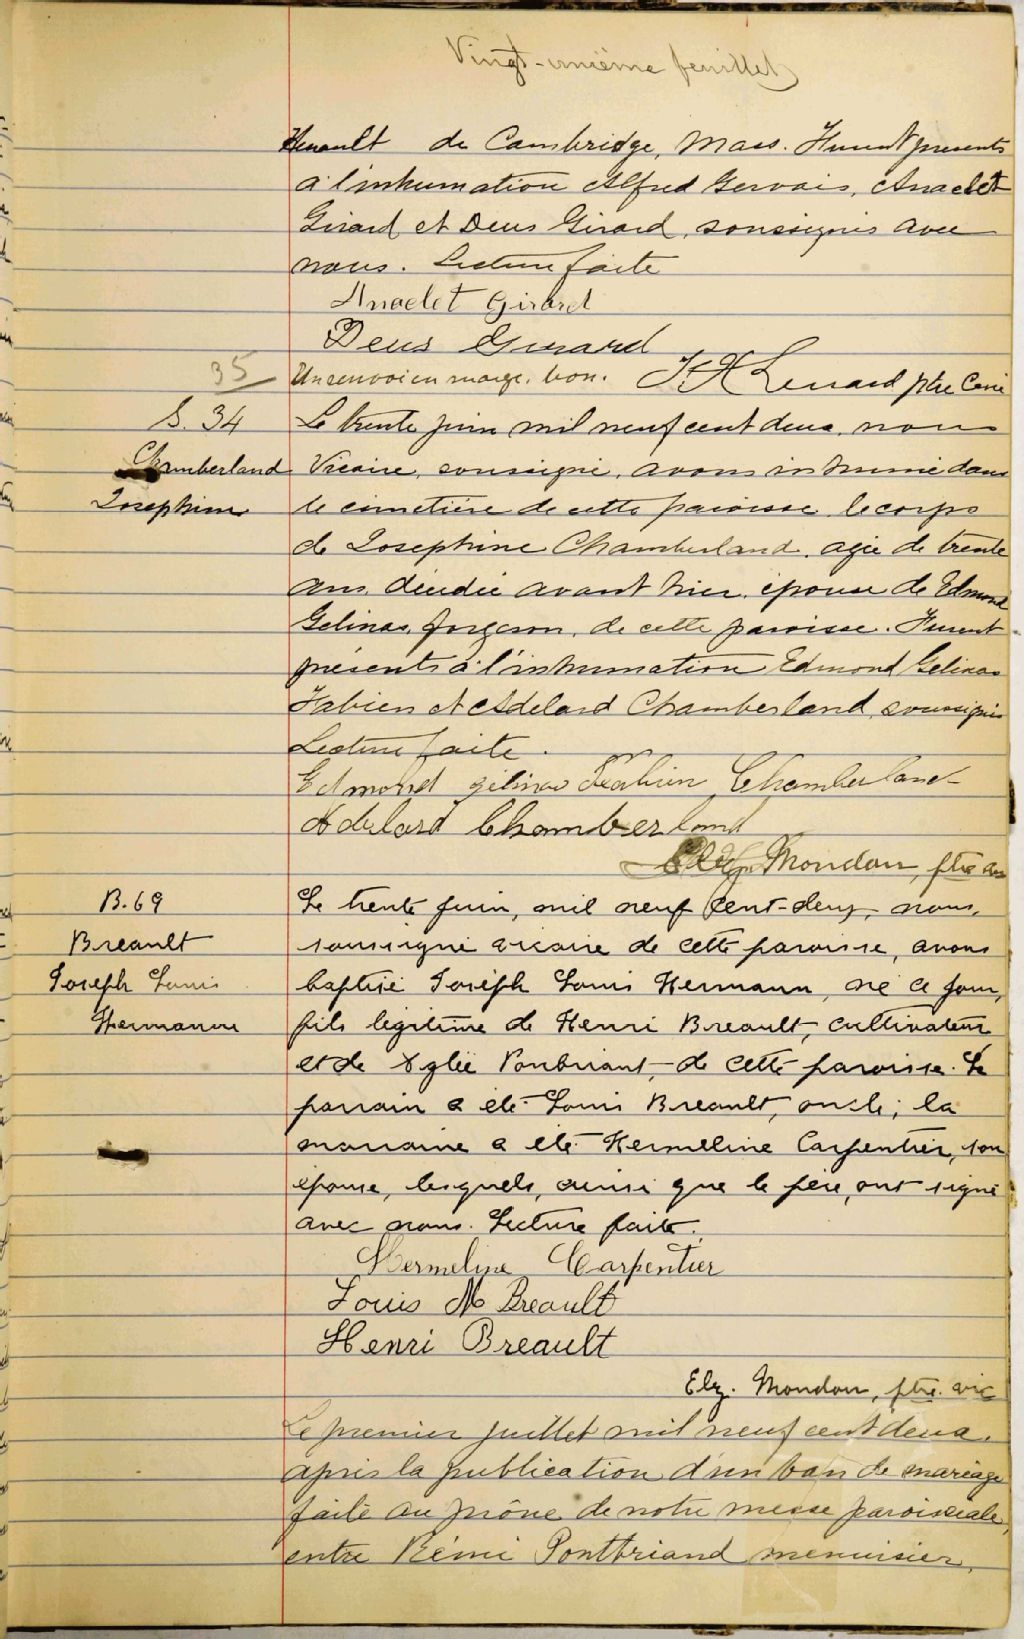 Vingt-unième feuillet
Henault de Cambridge, Mass. Furent presents
à l'inhumation Alfred Gervais, Anaclet
Girard et Deus Girard, soussignés avec
nous. Lecture faite
Anaclet Girard
Deus Girard
35
Un renvoi en marge. bon. ptre Curé
S. 34
Le trente juin mil neuf cent deux, nous
Chamberland
Vicaire, soussigné, avons inhumé dans
Josephine
le cimetière de cette paroisse le corps
de Josephine Chamberland, agée de trente
ans, décédée avant hier, épouse de Edmond
Gelinas, forgeron, de cette paroisse. Furent
présents à l'inhumation Edmond Gelinas
Fabien et Adelard Chamberland, soussignés
Lecture faite.
Edmond gélinas Fabien Chamberland
Adelard Chamberland
Elz. Mondou, ptre vic
B. 69
Le trente juin, mil neuf cent-deux, nous,
Breault
soussigné vicaire de cette paroisse, avons
Joseph Louis
baptisé Joseph Louis Hermann, né ce jour,
Hermann
fils légitime de Henri Breault, cultivateur
et de Aglée Ponbriant, de cette paroisse. Le
parrain a été Louis Breault, oncle; la
marraine a été Hermeline Carpentier, son
épouse, lesquels, ainsi que le père, ont signé
avec nous. Lecture faite.
Hermeline Carpentier
Louis M Breault
Henri Breault
Elz. Mondou, ptre. vic
Le premier juillet mil neuf cent deux,
après la publication d'un ban de mariage
faite au prône de notre messe paroissiale,
entre Rémi Pontbriand menuisier,